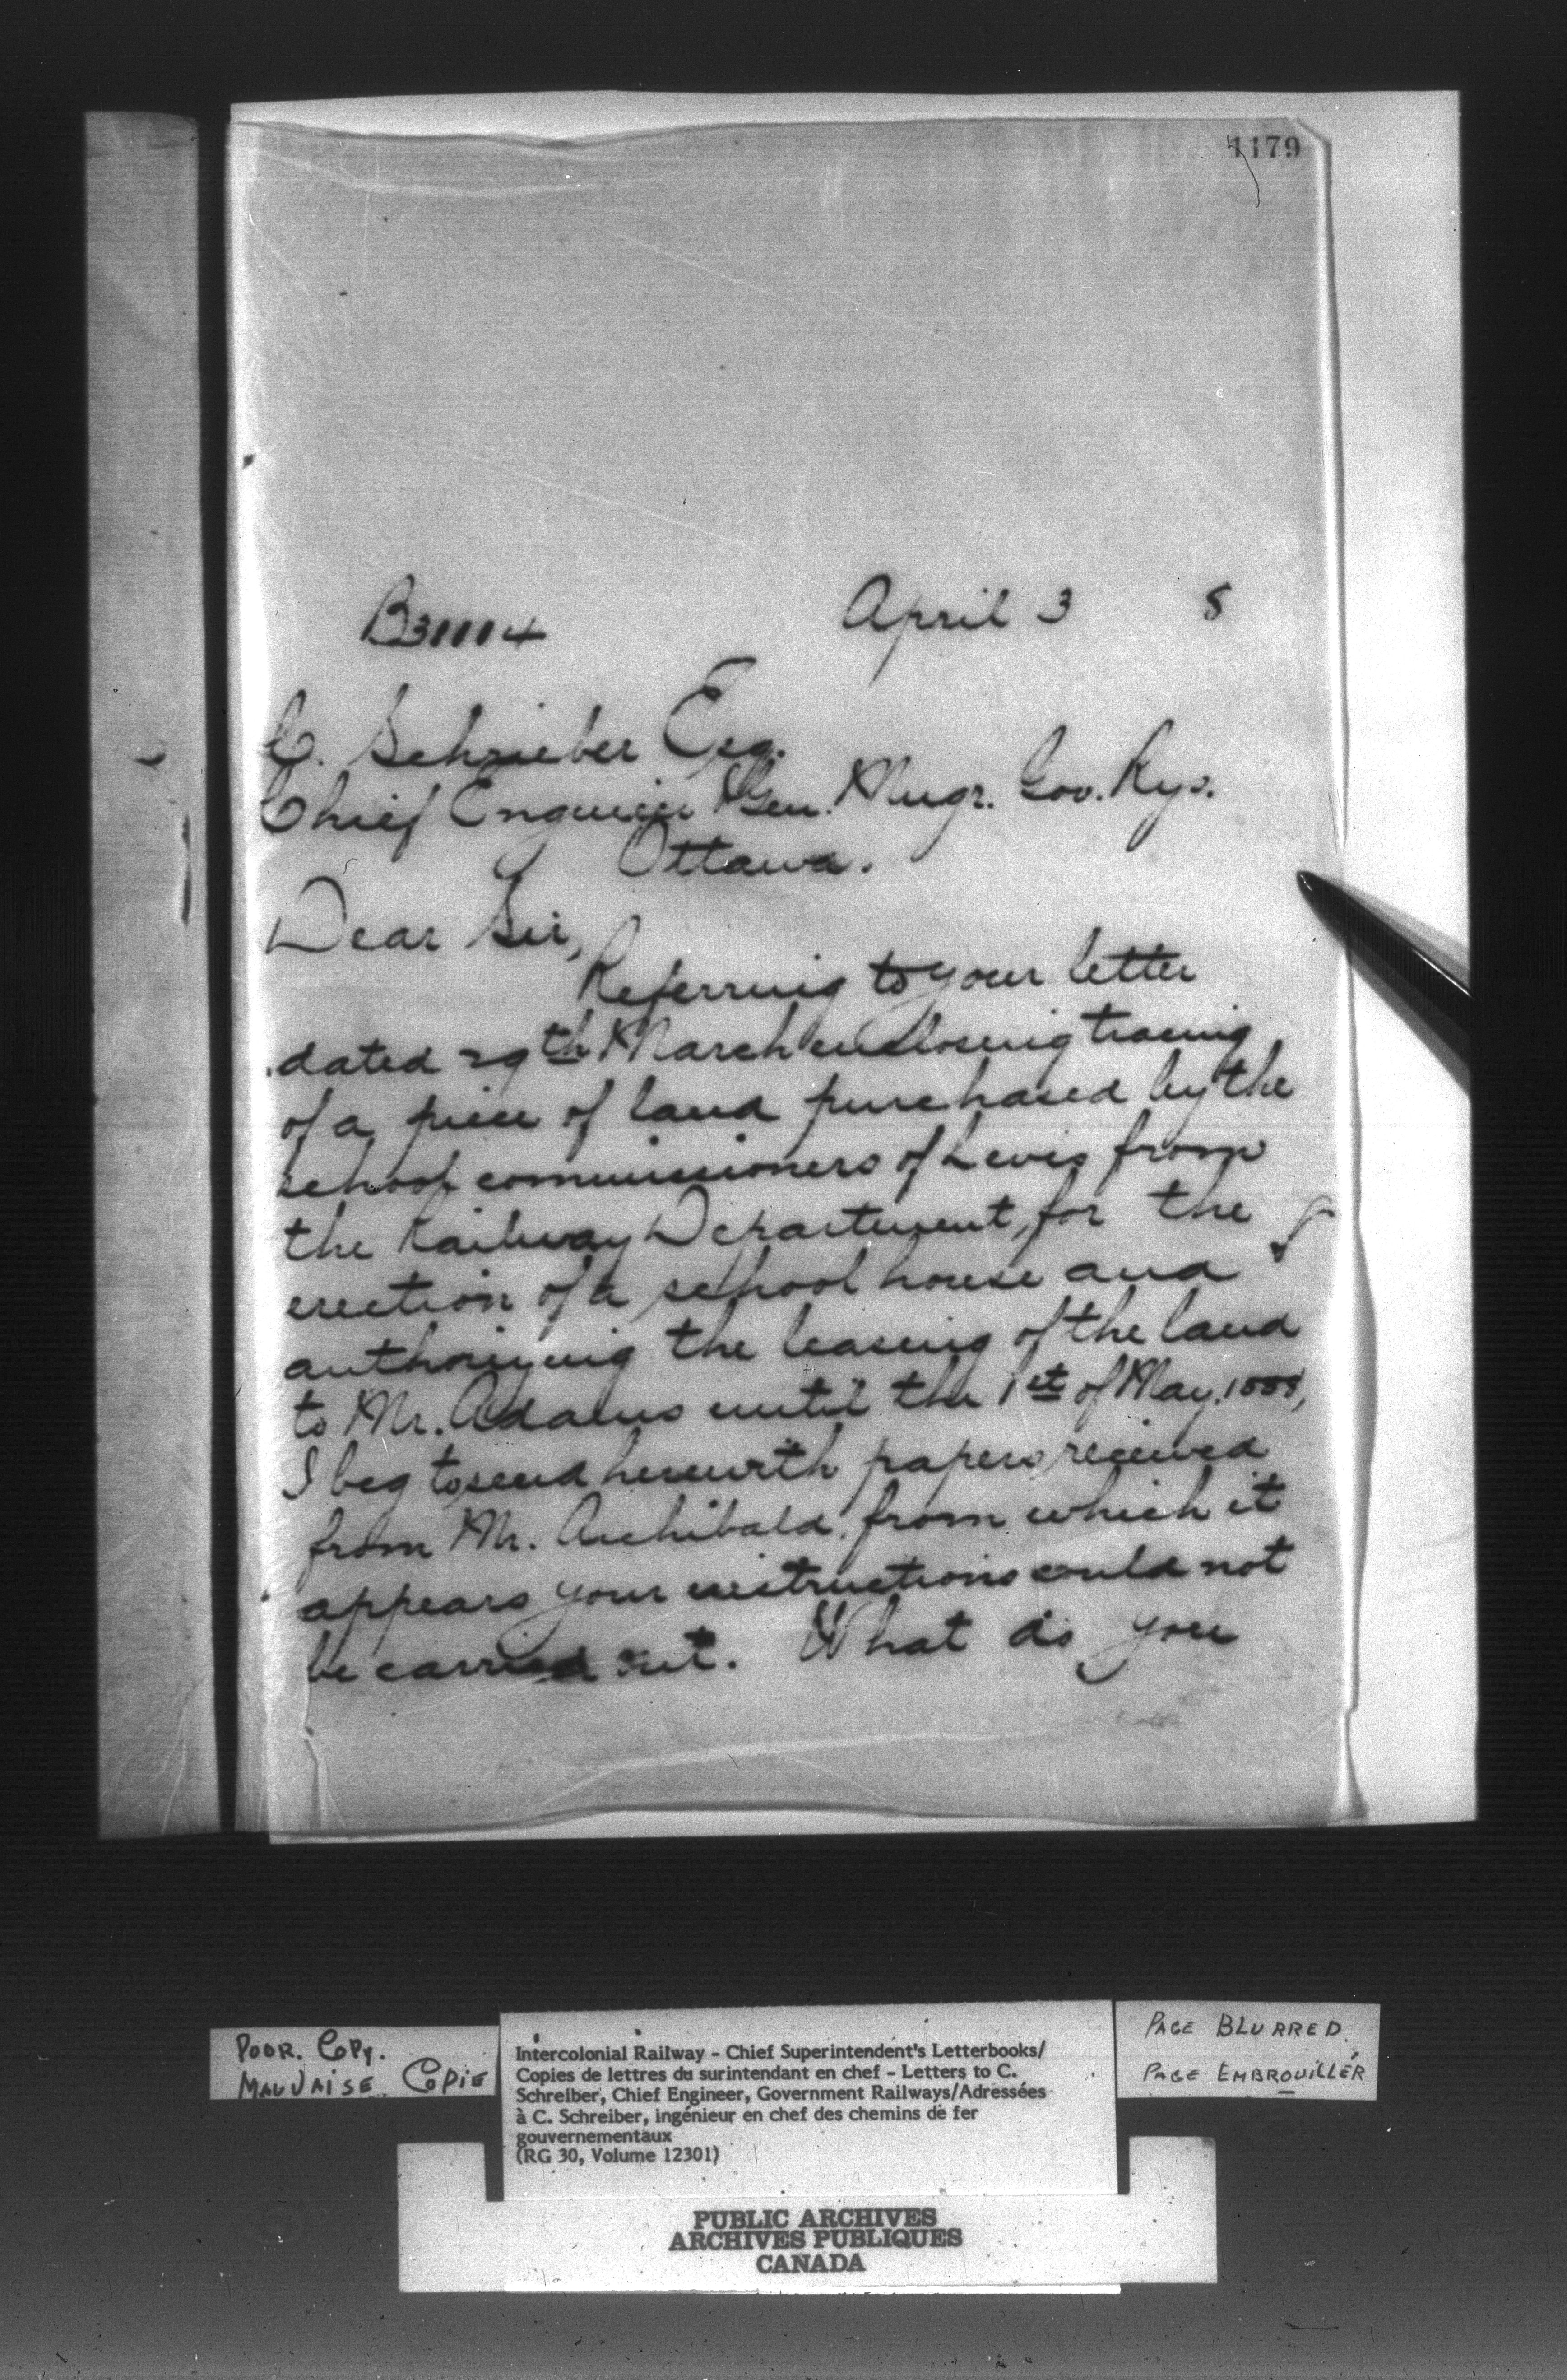 1179
B31114 April 3 8
C. Schrieber Esq.
Chief Engineer & Gen. Mngr. Gov. Rys.
Ottawa.
Dear Sir,
Referring to your letter
dated 29th March enclosing tracing
of a piece of land purchased by the
school commissioners of Levis from
the Railway Department, for the
erection of a school house and
authorizing the leasing of the land
to Mr. Adams until the 1st of May. 1888,
I beg to send herewith papers received
from Mr. Archibald, from which it
appears your instructions could not
be carried out. What do you
POOR. COPY.
MAUVAISE COPIE
Intercolonial Railway - Chief Superintendent's Letterbooks/
Copies de lettres du surintendant en chef - Letters to C.
Schreiber, Chief Engineer, Government Railways/Adressées
à C. Schreiber, ingénieur en chef des chemins de fer
gouvernementaux
(RG 30, Volume 12301)
PAGE BLURRED.
PAGE EMBROUILLÉR
PUBLIC ARCHIVES
ARCHIVES PUBLIQUES
CANADA